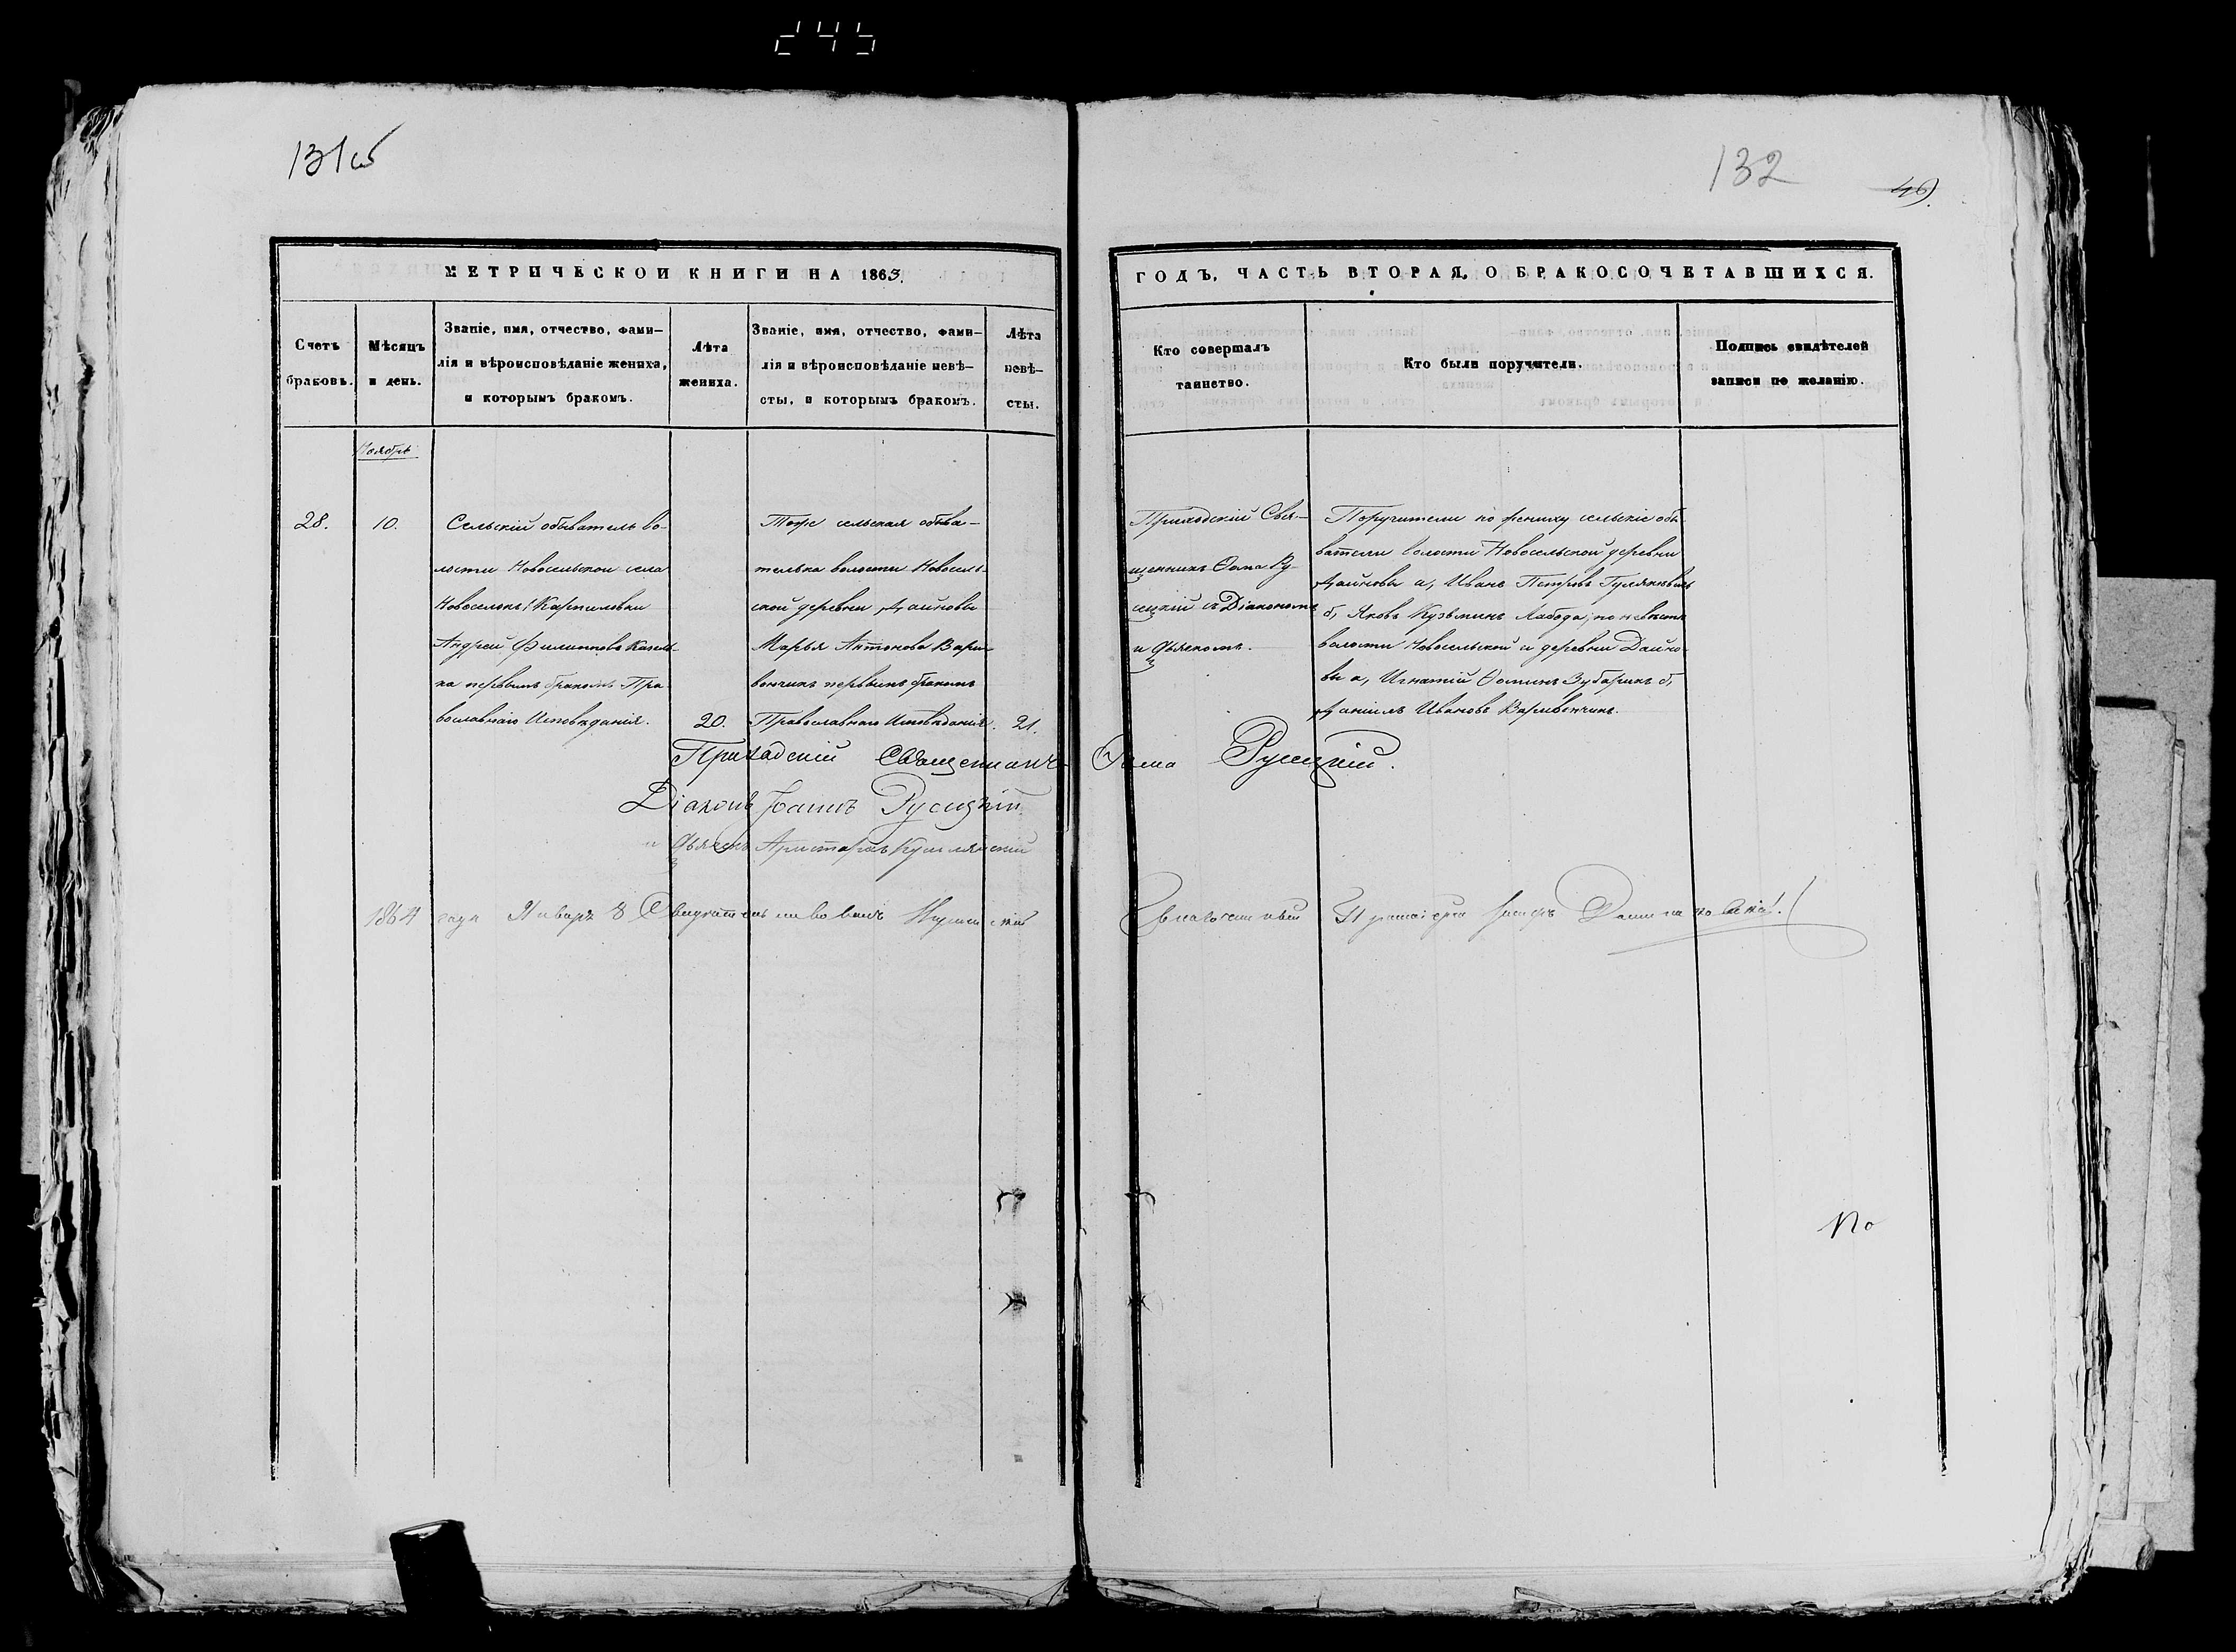 245
131об
132
49.
МЕТРИЧЕСКОЙ КНИГИ НА 1863.
ГОДЪ, ЧАСТЬ ВТОРАЯ, О БРАКОСОЧЕТАВШИХСЯ.
Счетъ
браковъ.
Мѣсяцъ
и день.
Званіе, имя, отчество, фами-
лія и вѣроисповѣданіе жениха,
и которымъ бракомъ.
Лѣта
жениха.
Званіе, имя, отчество, фами-
лія и вѣроисповѣданіе невѣ-
сты, и которымъ бракомъ.
Лѣта
невѣ-
сты.
Кто совершалъ
таинство.
Кто были поручители.
Подпись свидѣтелей
записи по желанію.
Ноябрь
28.
10.
Сельскій обыватель во-
лости Новосельской села
Новоселокъ
Андрей Филипповъ
ка первымъ бракомъ Пра
вославнаго Исповѣданія.
20.
Тоже сельская обыва-
телька волости Новосель-
ской деревни Дайновы
Марья Антонова Вари-
вончикъ первымъ бракомъ
Православнаго Исповѣданія.
21.
Приходскій Свя-
щенникъ Ѳома Ру-
сецкій съ Діакономъ
и Дьячкомъ.
Поручители по жениху сельскіе обы-
ватели волости Новосельской деревни
Дайновы а, Иванъ Петровъ
б, Яковъ Кузьминъ Лабода; по невѣстѣ
волости Новосельской и деревни Дайно-
вы а, Игнатій Ѳоминъ Зубарикъ б,
Даніилъ Ивановъ Варивончикъ.
Приходскій Священникъ Ѳома Русецкій.
Діаконъ Іоаннъ Русецкій
и Дьячекъ Аристархъ
1864 года Январъ 8
Благочинный
No